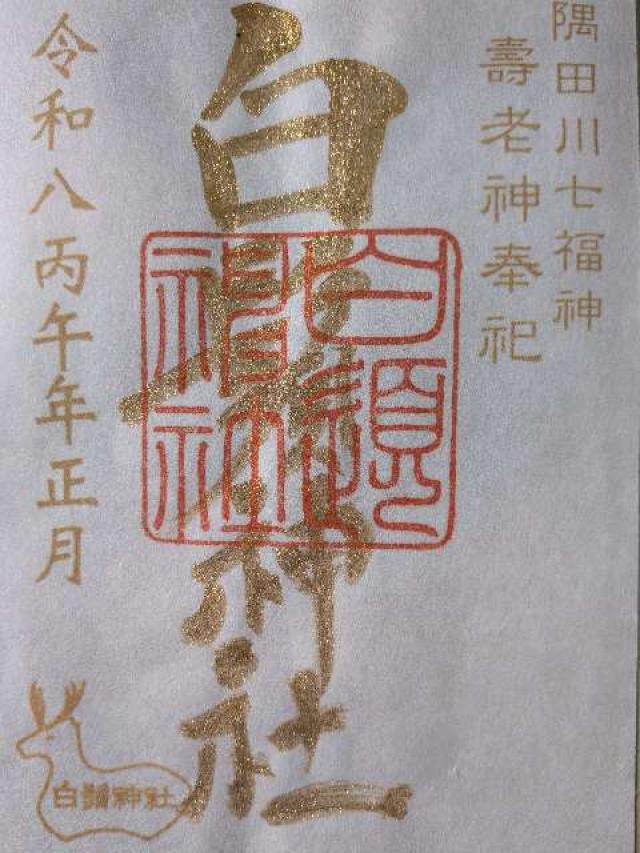 隅田川七福神
壽老神奉祀
白鬚神社
白鬚神社
令和八丙午年正月
白鬚神社